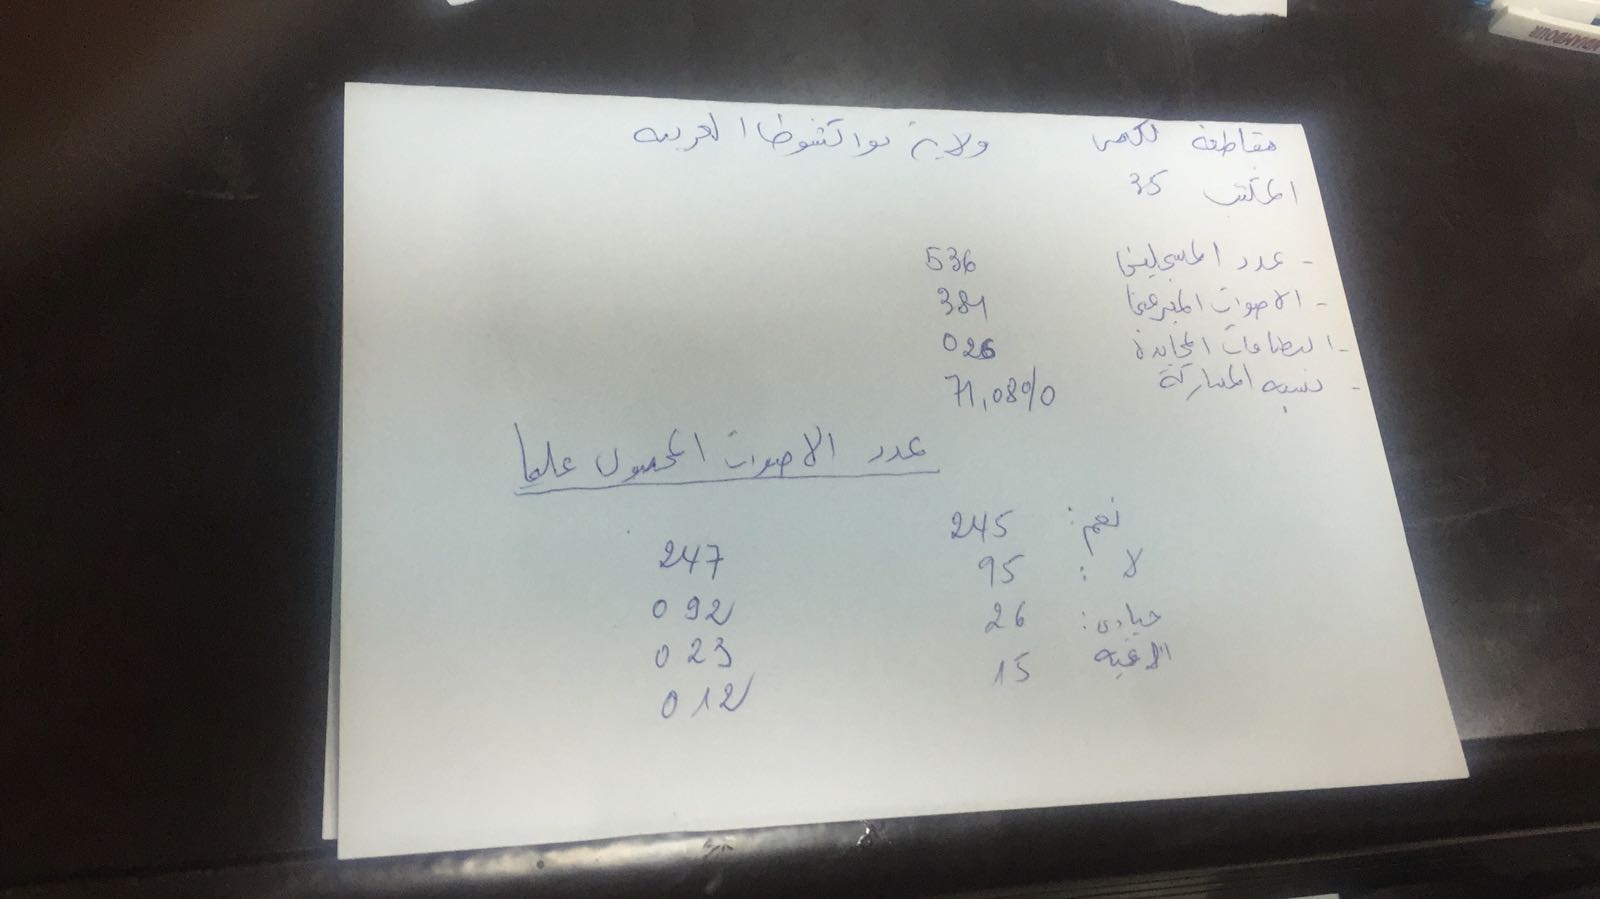 مقاطعة لكصر ولاية نواكشوط الغربية
المكتب 35
- عدد المسجلين 536
- الاصوات المعبر عنها 381
- البطاقات المحايدة 026
- نسبة المشاركة 71,08%
عدد الاصوات المحصول عليها
نعم: 245 247
لا: 95 092
حيادي: 26 023
لاغية 15 012